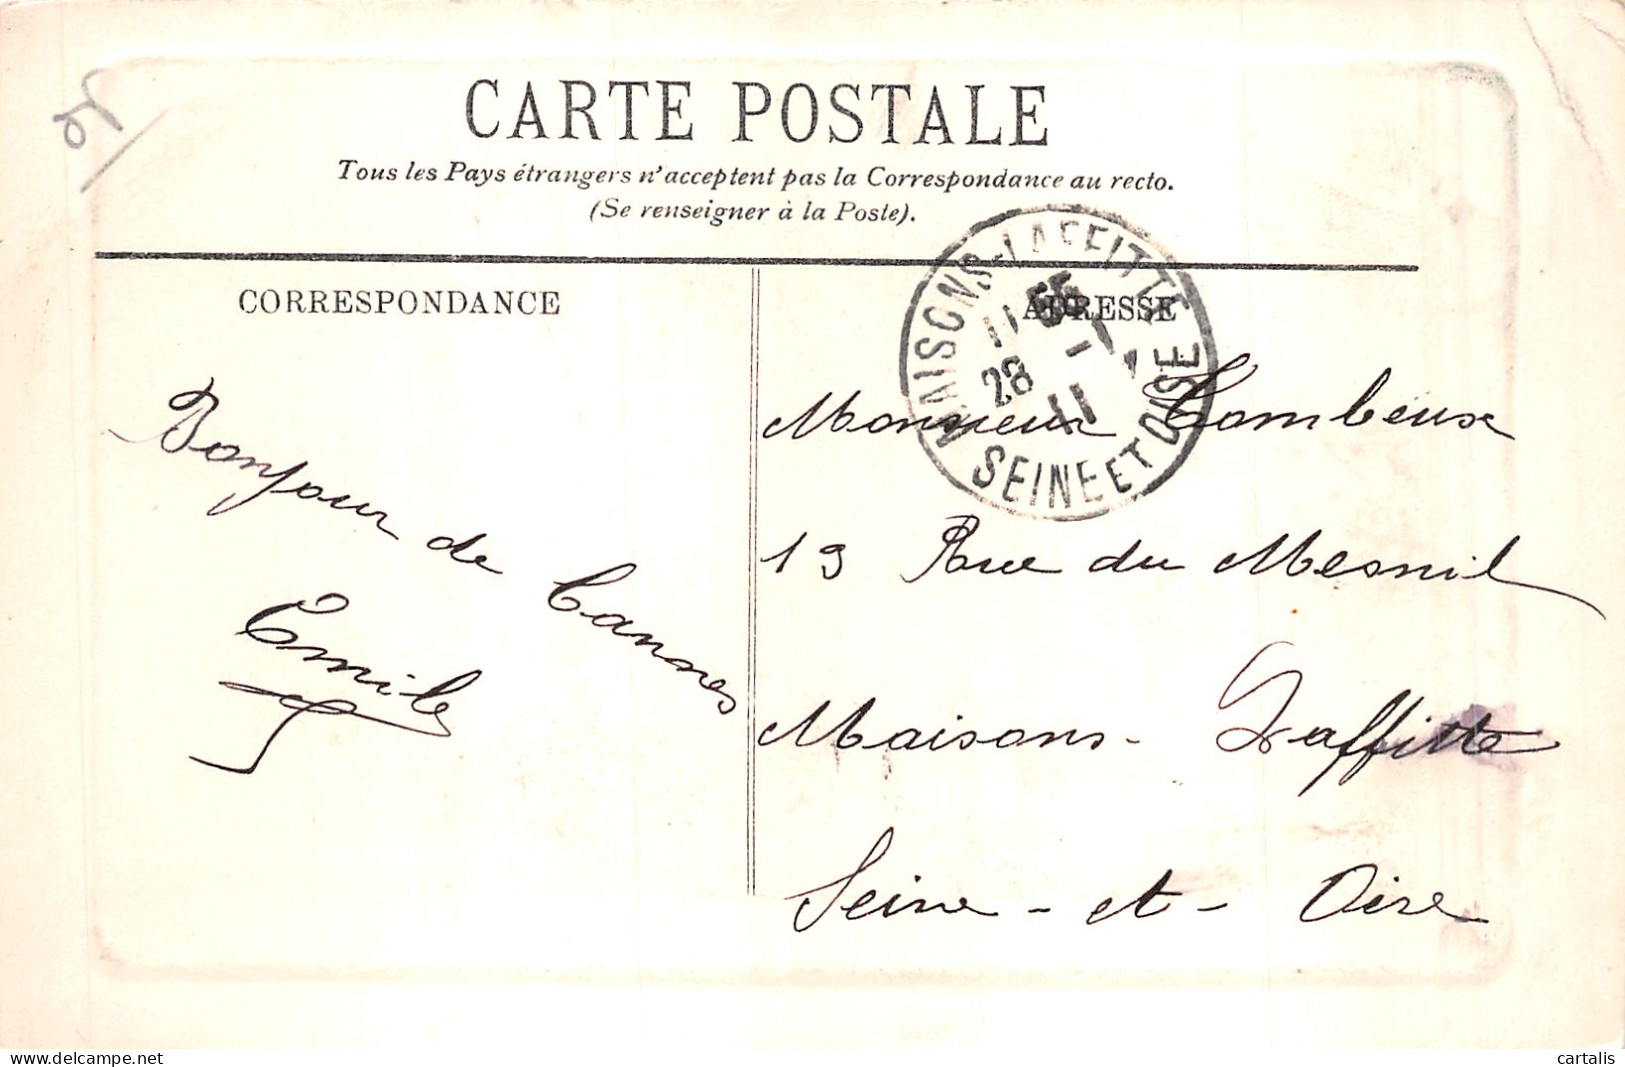 CARTE POSTALE
Tous les Pays étrangers n'acceptent pas la Correspondance au recto.
(Se renseigner à la Poste).
CORRESPONDANCE
ADRESSE
MAISONS-LAFFITTE
28 1
11
SEINE ET OISE
Bonjour de Cannes
Emile
Monsieur Combeuse
19 Rue du Mesnil
Maisons-Laffitte
Seine-et-Oise
delcampe.net
cartalis